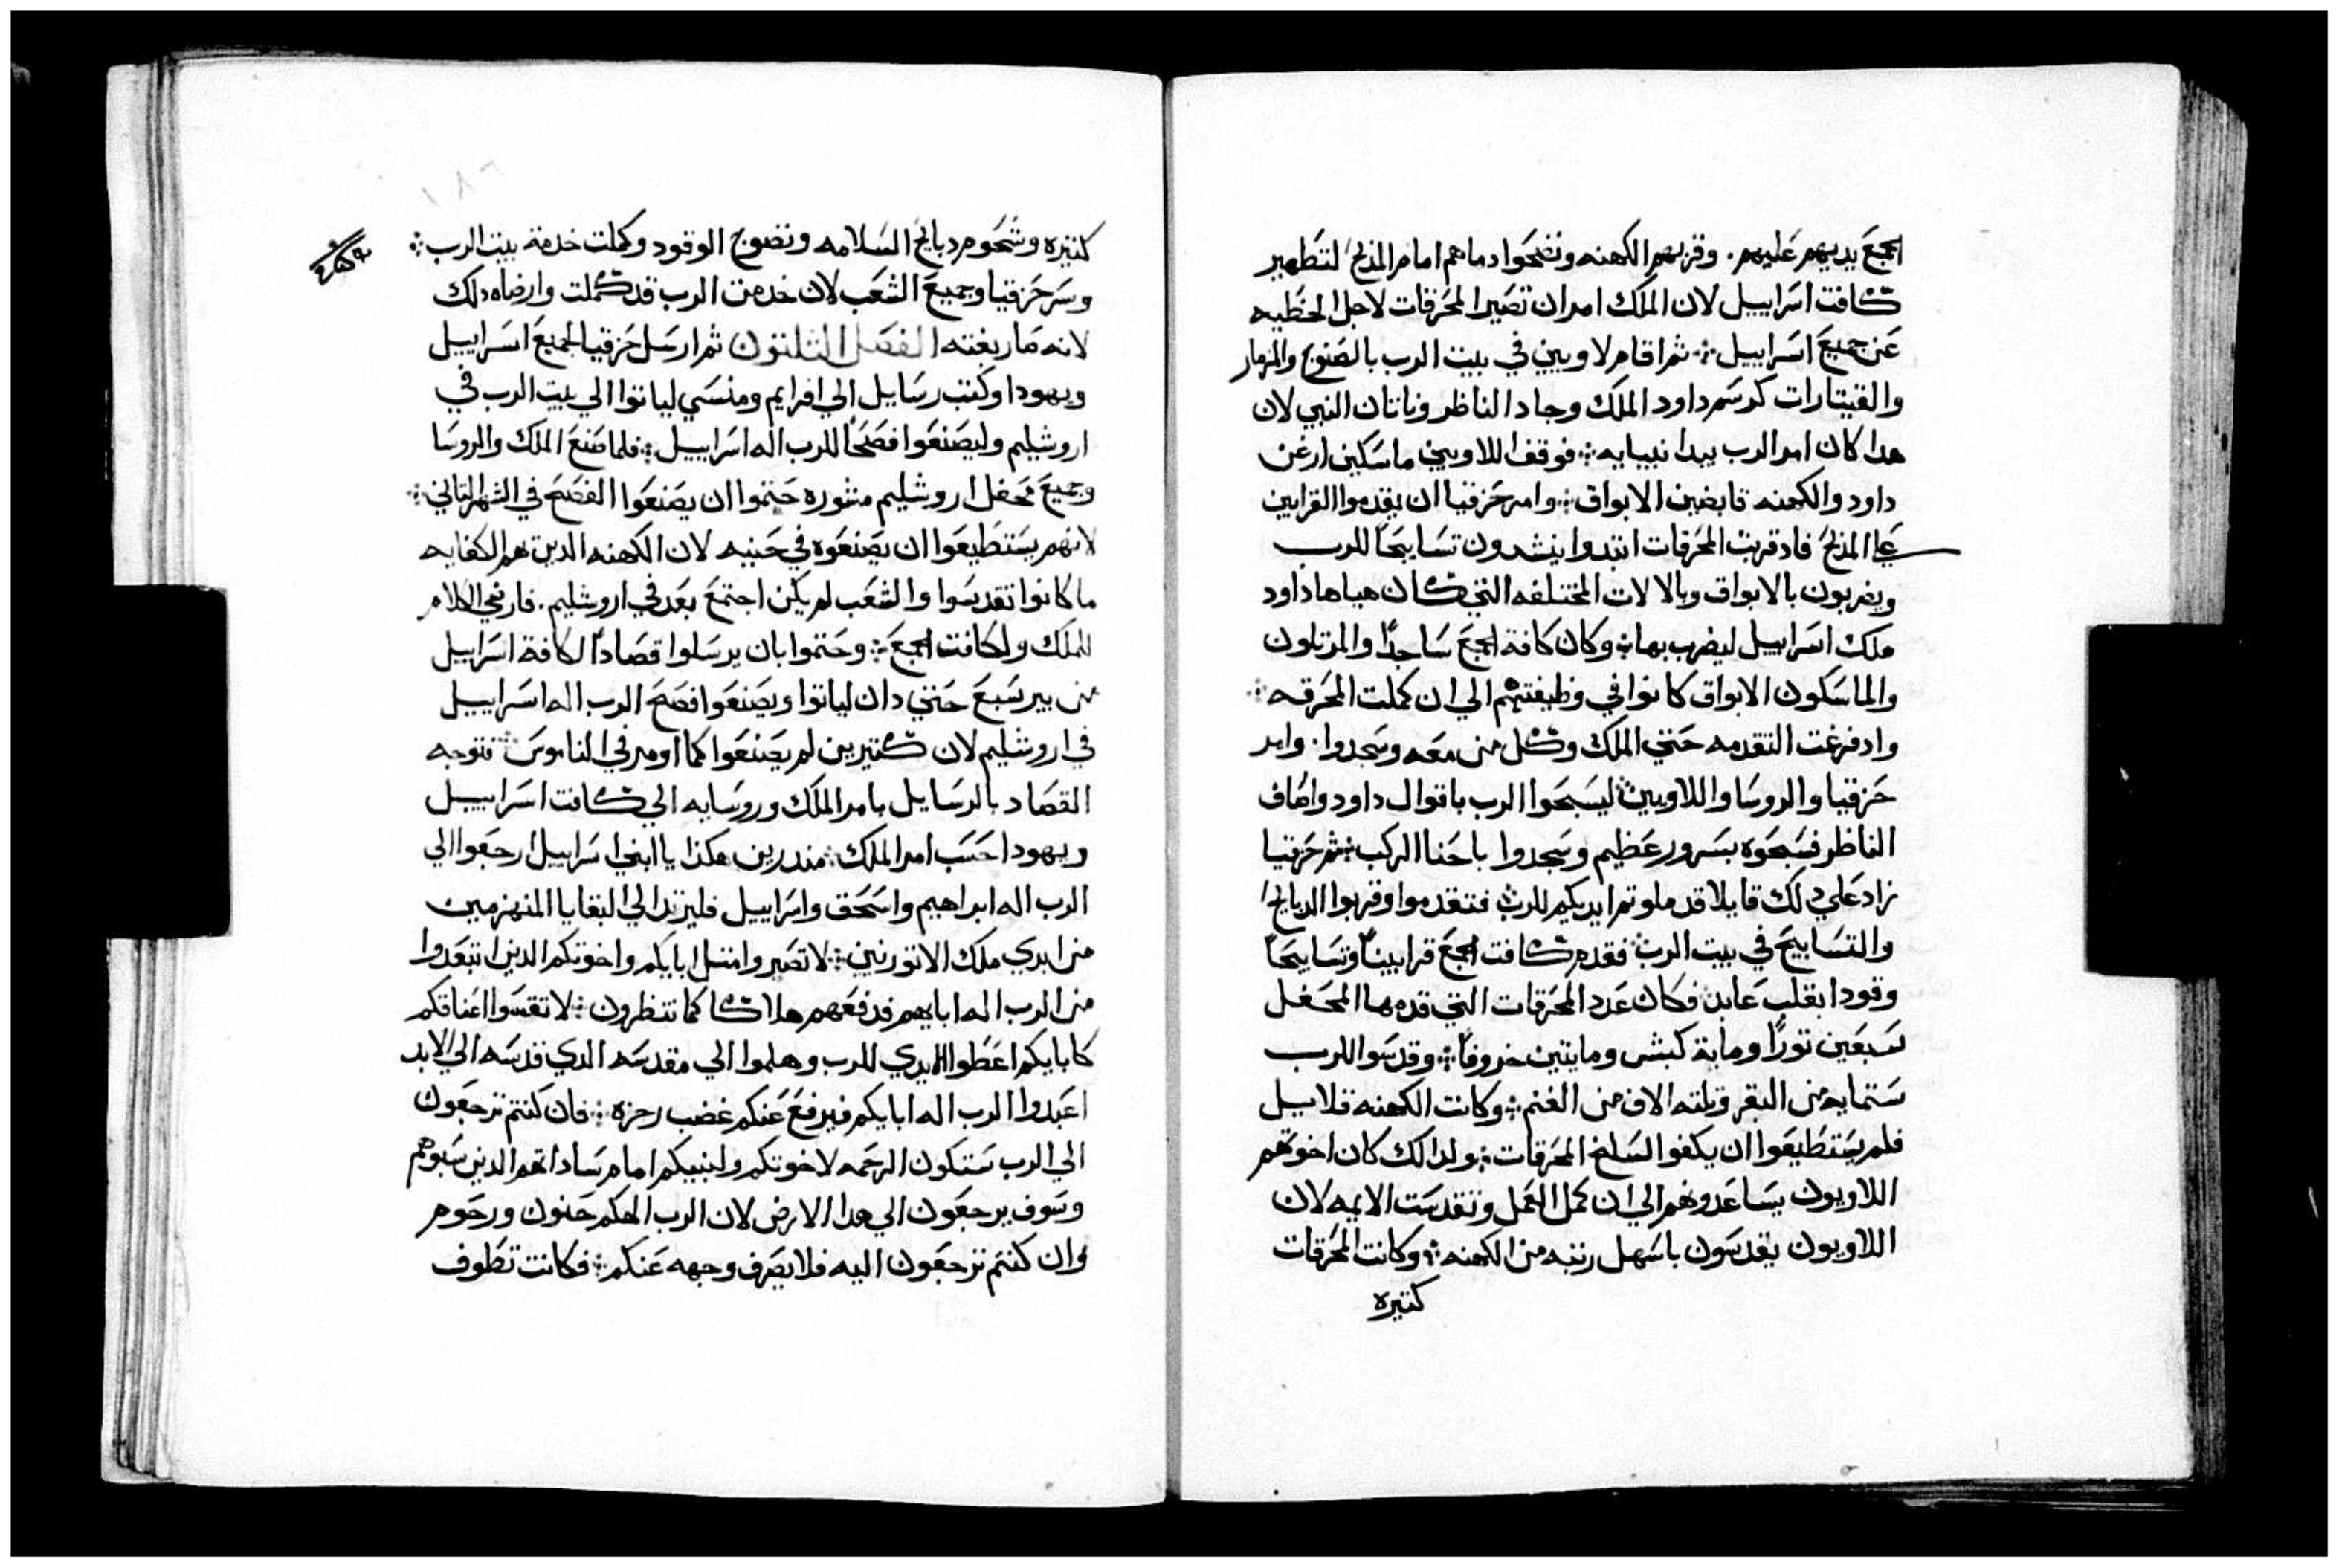 الجمع يديهم عليهم . وقربهم الكهنه ونضحوا دماهم امام المذبح لتطهير
كافت اسراييل لان الملك امر ان تصير المحرقات لاجل الخطيه
عن جميع اسراييل ܀ ثم اقام لاويين في بيت الرب بالصنوج والمزمار
والقيتارات كرسم داود الملك وجاد الناظر وناتان النبي لان
هدا كان امر الرب بيدا نبيايه ܀ فوقف اللاويين ماسكين ارغن
داود والكهنه قابضين الابواق ܀ وامر حزقيا ان يقدموا القرابين
علي المذبح فاد قربت المحرقات ابتدوا ينشدون تسابيحًا للرب
ويضربون بالابواق وبالالات المختلفه التي كان هياها داود
ملك اسراييل ليضرب بها ܀ وكان كافة الجمع ساجدًا والمرتلون
والماسكون الابواق كانوا في وظيفتهم الي ان كملت المحرقه ܀
واد فرغت التقدمه حتي الملك وكل من معه وسجدوا . وامر
حزقيا والروسا واللاويين ليسبحوا الرب باقوال داود واصاف
الناظر فسبحوه بسرور عظيم وسجدوا باحنا الركب ܀ ثم حزقيا
زاد علي دلك قايلا قد ملوتم ايديكم للرب فتقدموا وقربوا الدبايح
والتسابيح في بيت الرب فقدم كافت الجمع قرابينًا وتسابيحًا
وقودا بقلب عابد فكان عدد المحرقات التي قدمها المحفل
سبعين تورًا وماية كبش ومايتين خروفًا ܀ وقدسوا للرب
ستمايه من البقر وتلته الاف من الغنم ܀ وكانت الكهنه قلايل
فلم يستطيعوا ان يكفوا لسلخ المحرقات ܀ ولدالك كان اخوتهم
اللاويون يساعدونهم الي ان كمل العمل وتقدست الايمه لان
اللاويون يقدسون باسهل رتبه من الكهنه ܀ وكانت المحرقات
كتيره
١٨٦
كتيره وشحوم دبايح السلامه ونضوح الوقود وكملت خدمة بيت الرب ܀
وسر حزقيا وجميع الشعب لان خدمت الرب قد كملت وارضاه دلك
لانه صار بغته الفصل التلتون ثم ارسل حزقيا لجميع اسراييل
ويهودا وكتب رسايل الي افرايم ومنسي لياتوا الي بيت الرب في
اروشليم وليصنعوا فصحًا للرب اله اسراييل ܀ فلما صنع الملك والروسا
وجميع محفل اروشليم مشوره حتموا ان يصنعوا الفصح في الشهر التاني ܀
لانهم يستطيعوا ان يصنعوه في حينيه لان الكهنه الدين هم الكفايه
ما كانوا تقدسوا والشعب لم يكن اجتمع بعد في اروشليم . فارضي الكلام
للملك ولكافت الجمع ܀ وحتموا بان يرسلوا قصادًا لكافة اسراييل
من بير سبع حتي دان لياتوا ويصنعوا فصح الرب اله اسراييل
في اروشليم لان كتيرين لم يصنعوا كما اومر في الناموس ܀ فتوجه
القصاد بالرسايل بامر الملك وروسايه الي كافت اسراييل
ويهودا حسب امر الملك ܀ مندرين هكدا يا ابني اسراييل ارجعوا الي
الرب اله ابراهيم واسحق واسراييل فليرتد الي البقايا المنهزمين
من ايدي ملك الاتورنين ܀ لا تصيروا متل ابايكم واخوتكم الدين ابتعدوا
من الرب اله ابايهم فدفعهم هلاكا كما تنظرون ܀ لا تقسوا اعناقكم
كابايكم اعطوا الايدي للرب وهلموا الي مقدسه الدي قدسه الي الابد
اعبدوا الرب اله ابايكم فيرفع عنكم غضب رجزه ܀ فان كنتم ترجعون
الي الرب ستكون الرحمه لاخوتكم ولبنيكم امام ساداتهم الدين سبوهم
وسوف يرجعون الي هدا الارض لان الرب الهكم حنون ورحوم
وان كنتم ترجعون اليه فلا يصرف وجهه عنكم ܀ فكانت تطوف